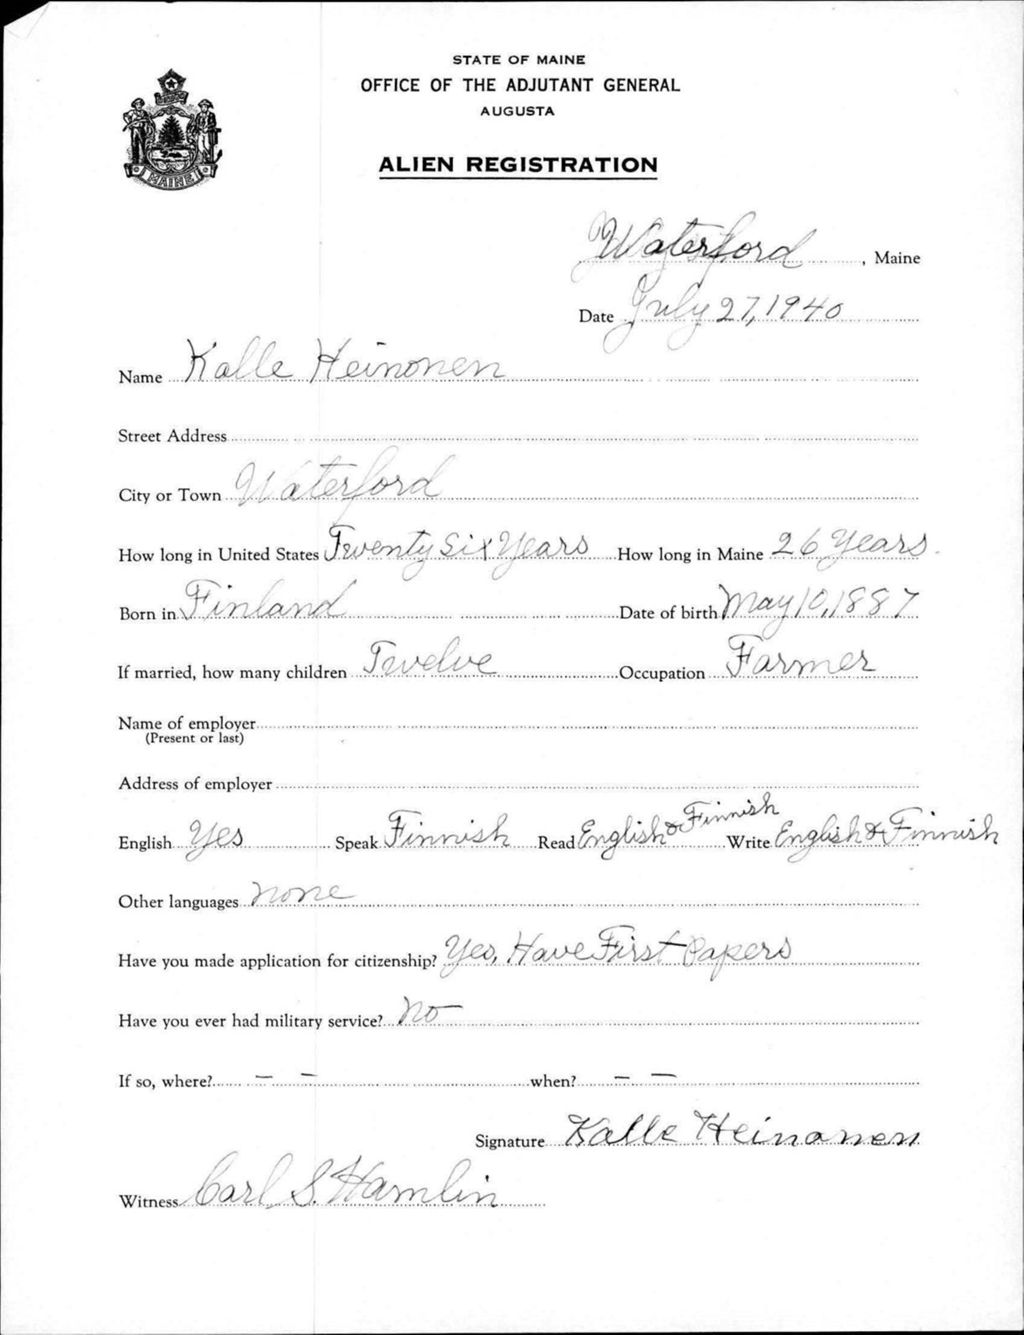 STATE OF MAINE
OFFICE OF THE ADJUTANT GENERAL
AUGUSTA
ALIEN REGISTRATION
MAINE
Waterford, Maine
Date July 27, 1940
Name Kalle Heinonen
Street Address
City or Town Waterford
How long in United States Twenty Six Years How long in Maine 26 Years
Born in Finland Date of birth May 10, 1887
If married, how many children Twelve Occupation Farmer
Name of employer
(Present or last)
Address of employer
English Yes Speak Finnish Read English & Finnish Write English & Finnish
Other languages none
Have you made application for citizenship? Yes, Have First Papers
Have you ever had military service? No
If so, where? — — when? — —
Signature Kalle Heinonen
Witness Carl S. Hamlin